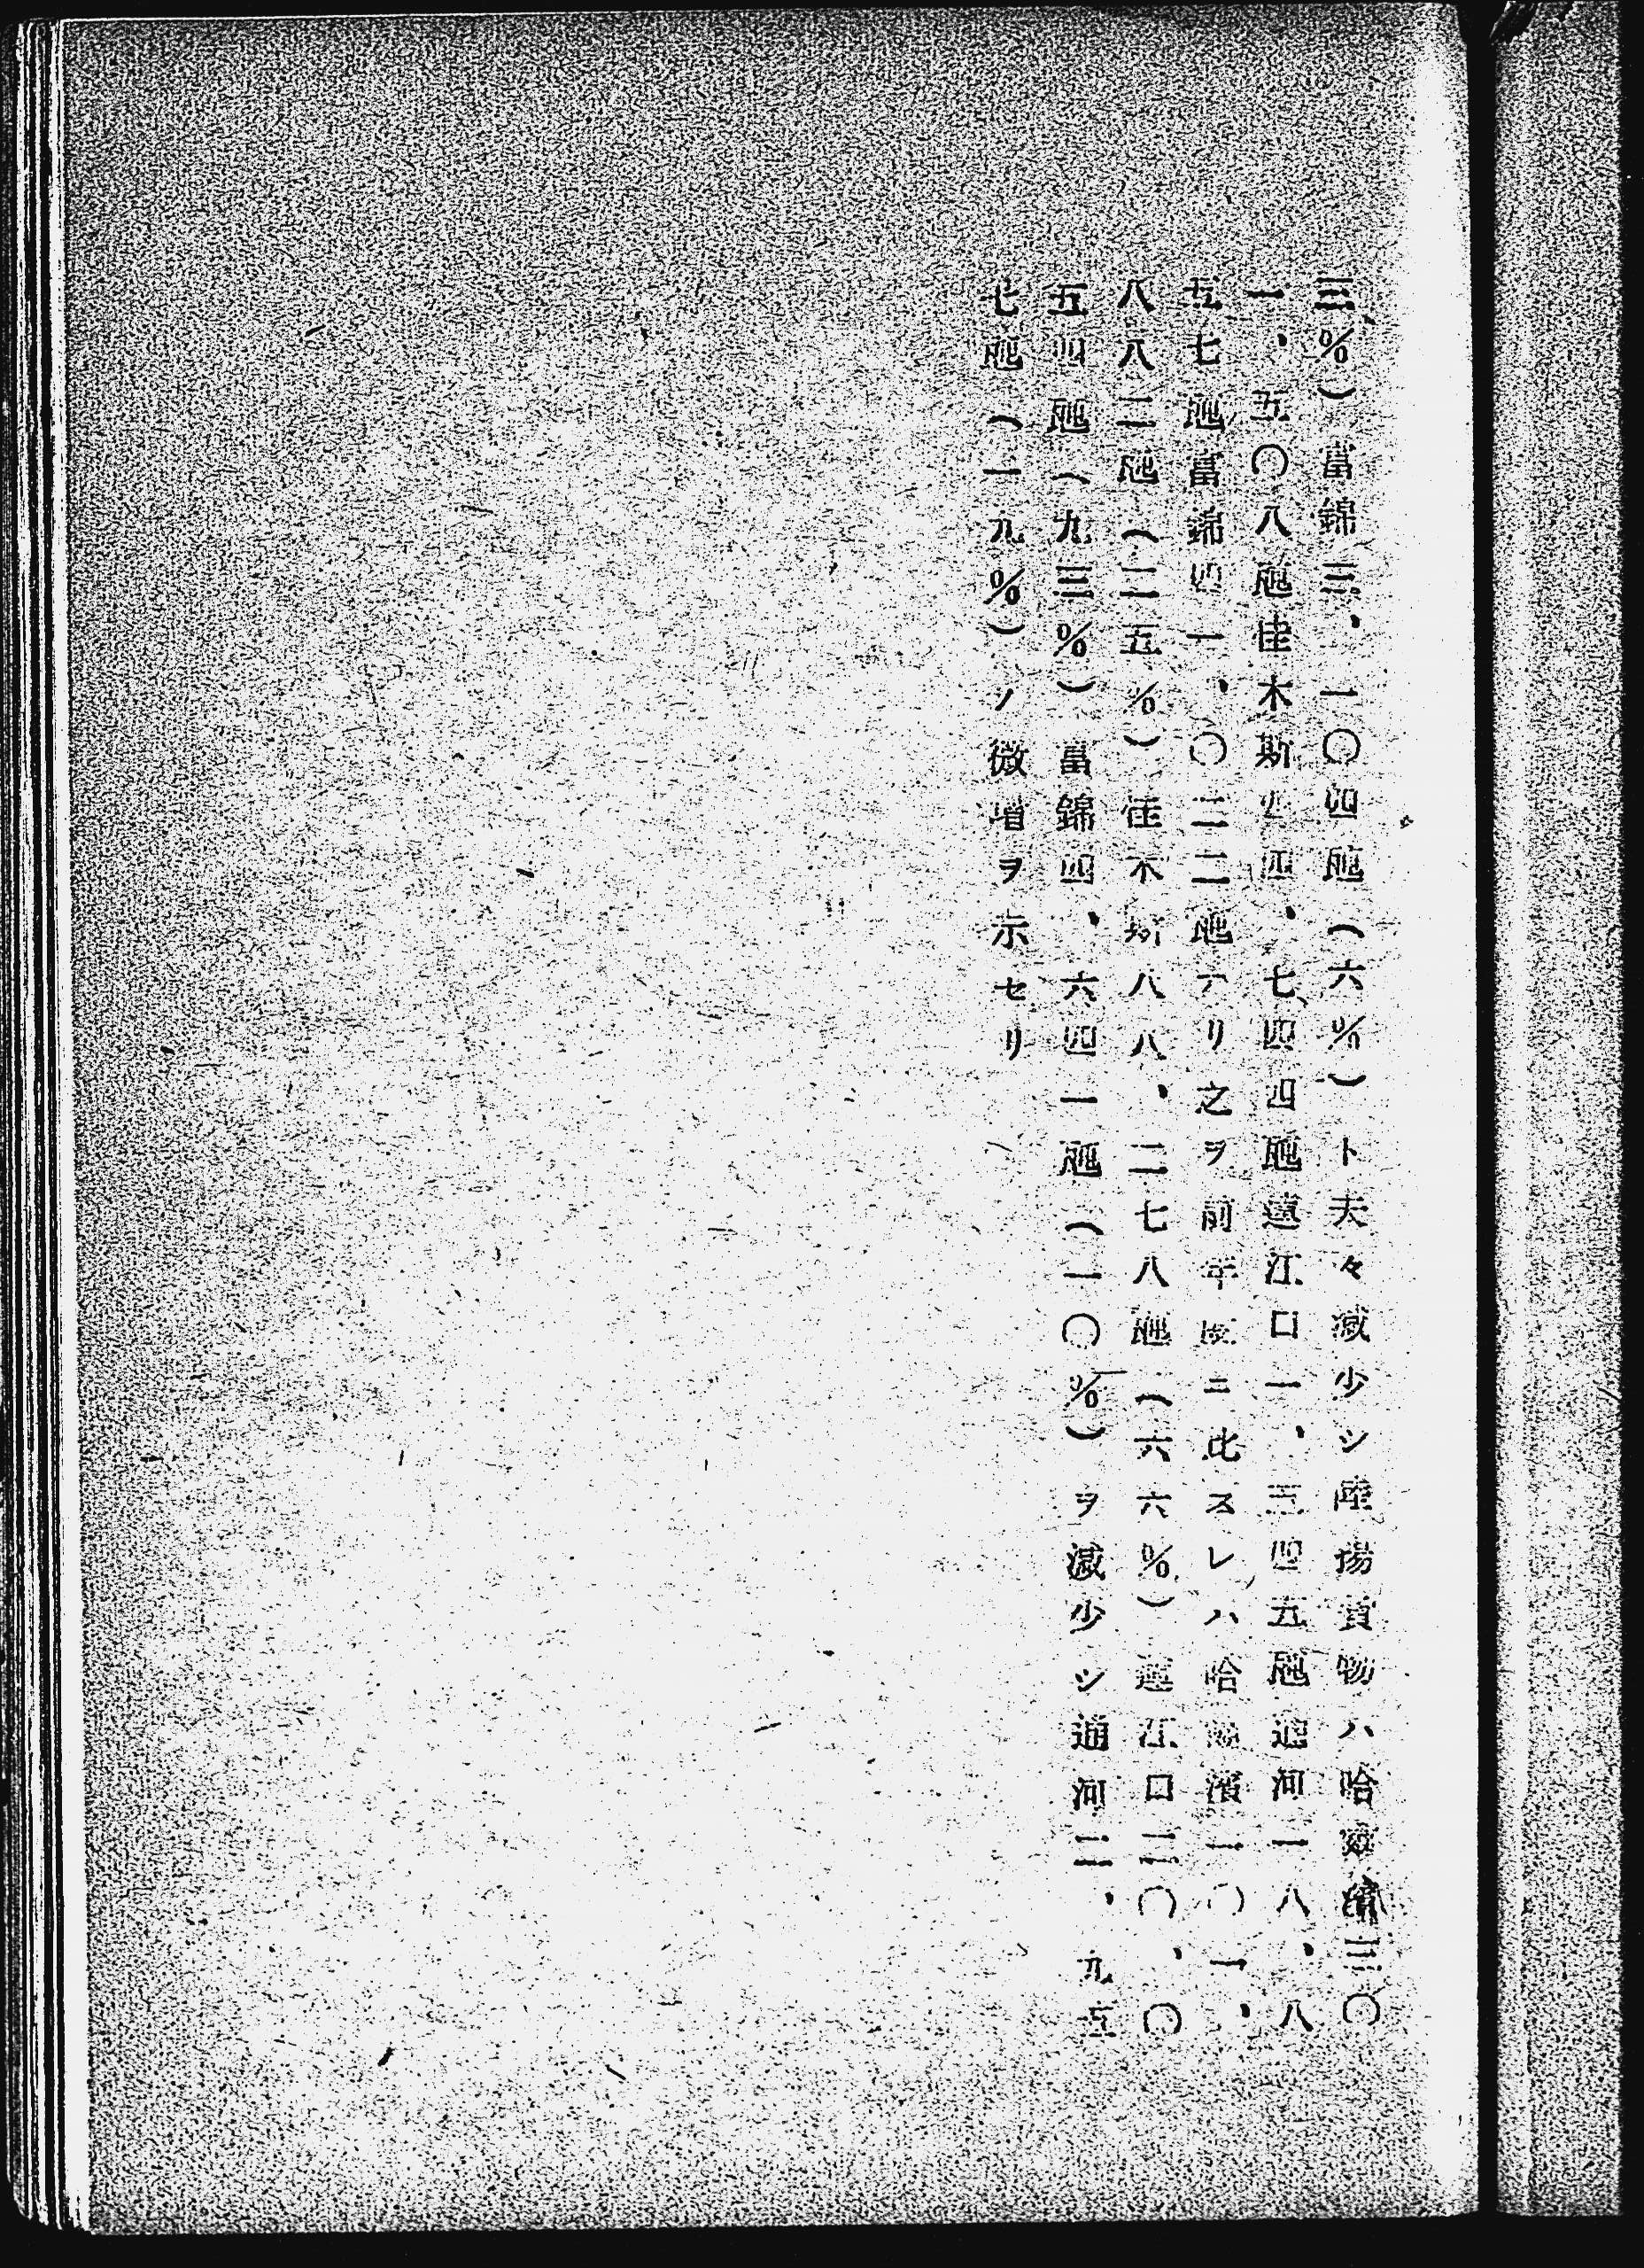 三％）富錦三、一〇四瓲（六％）ト夫々減少シ陸揚貨物ハ哈爾濱三〇
一、五〇八瓲佳木斯四四、七四四瓲蓮江口一、三四五瓲通河一八、八
五七瓲富錦四一、〇二二瓲アリ之ヲ前年度ニ比スレハ哈爾濱一〇一、
八八二瓲（二五％）佳木斯八八、二七八瓲（六六％）蓮江口二〇、〇
五四瓲（九三％）富錦四、六四一瓲（一〇％）ヲ減少シ通河二、九五
七瓲（一九％）ノ微増ヲ示セリ